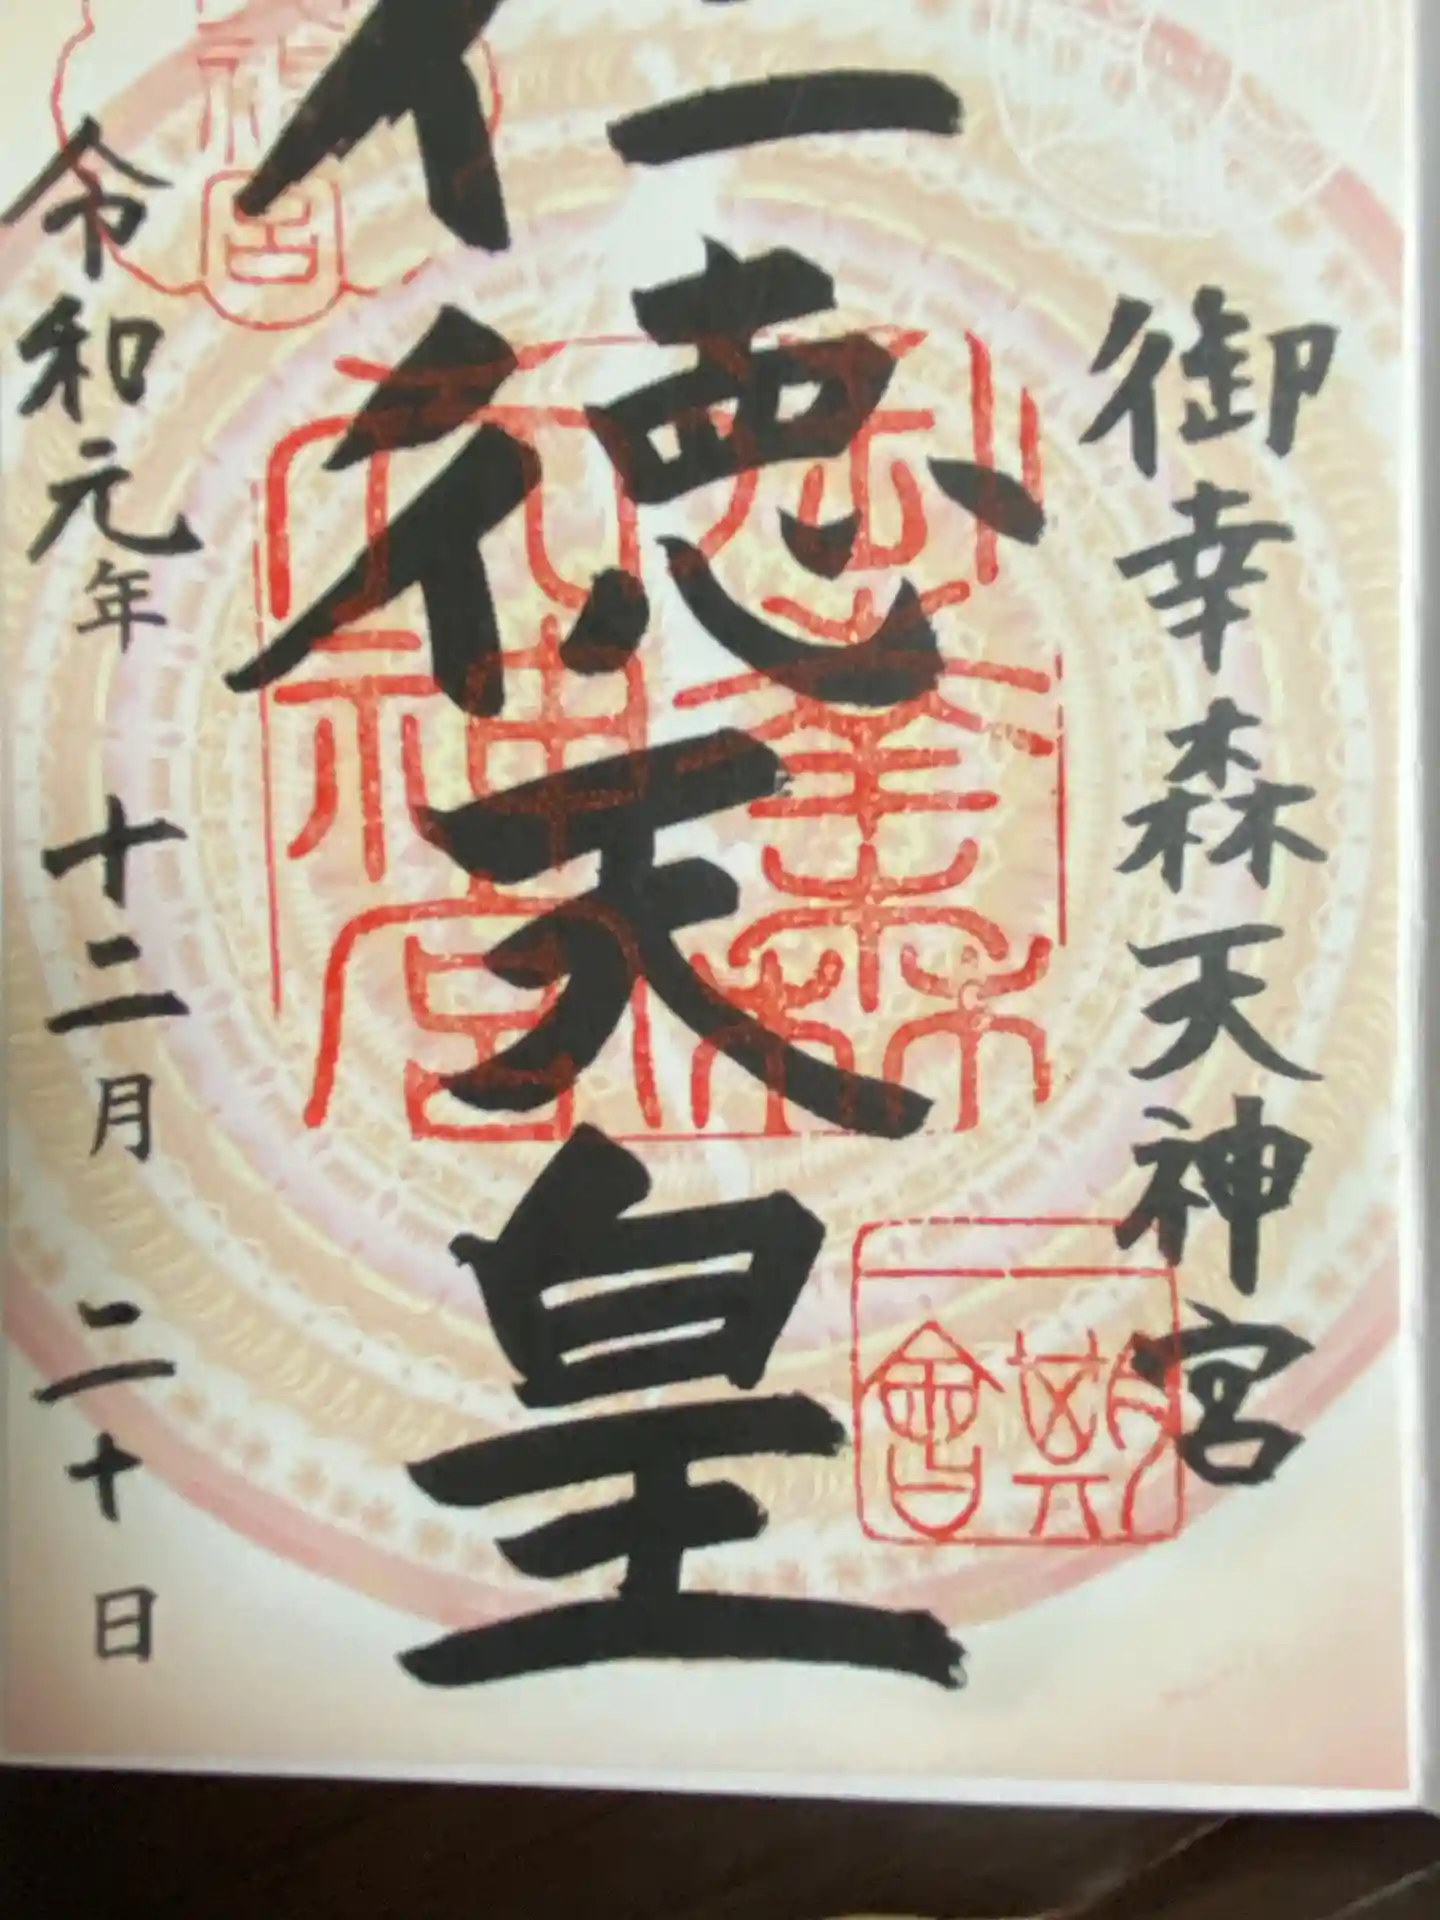 御幸森天神宮
仁徳天皇
令和元年十二月二十日